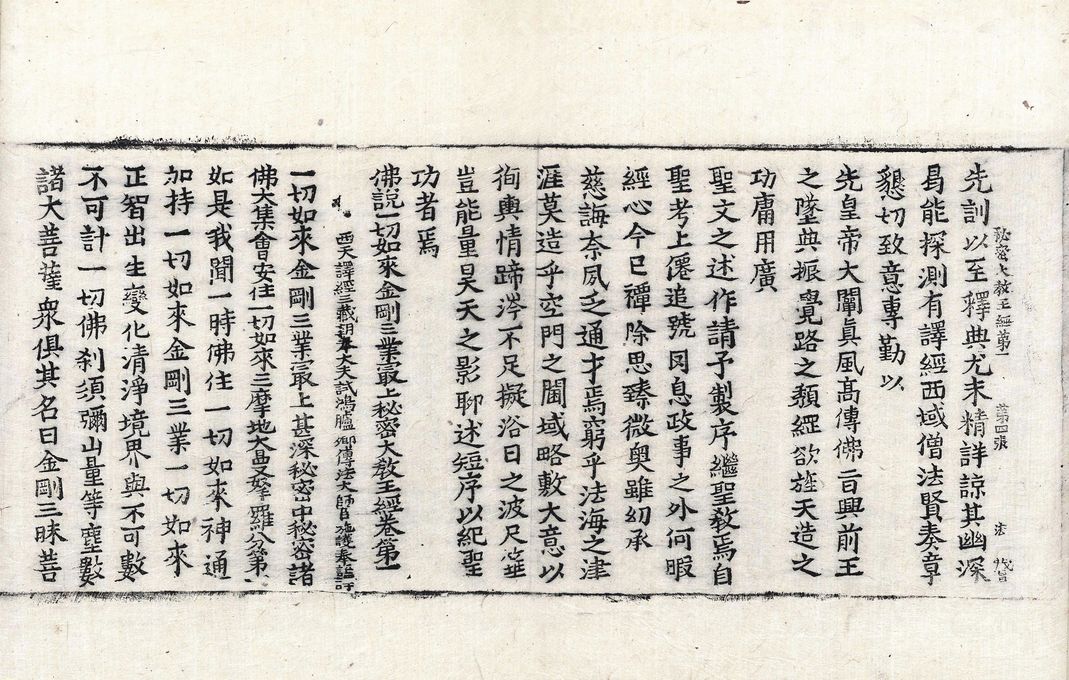 秘密大教王經第一 第四張 法
先訓以至釋典尤未精詳諒其幽深
曷能探測有譯經西域僧法賢奏章
懇切致意專勤以
先皇帝大闡真風高傳佛旨興前王
之墜典振覺路之頽綱欲旌天造之
功庸用廣
聖文之述作請予製序繼聖教焉自
聖考上僊追號罔息政事之外何暇
經心今已禫除思臻微奥雖幼承
慈誨柰夙乏通才焉窮乎法海之津
涯莫造乎空門之閫域略敷大意以
徇輿情蹄涔不足擬浴日之波尺箠
豈能量昊天之影聊述短序以紀聖
功者焉
佛說一切如來金剛三業最上秘密大教王經卷第一
西天譯經三藏朝奉大夫試鴻臚卿傳法大師臣施護奉詔譯
一切如來金剛三業最上甚深秘密中秘密諸
佛大集會安住一切如來三摩地大曼拏羅分第一
如是我聞一時佛住一切如來神通
加持一切如來金剛三業一切如來
正智出生變化清淨境界與不可數
不可計一切佛刹須彌山量等塵數
諸大菩薩衆俱其名曰金剛三昧菩